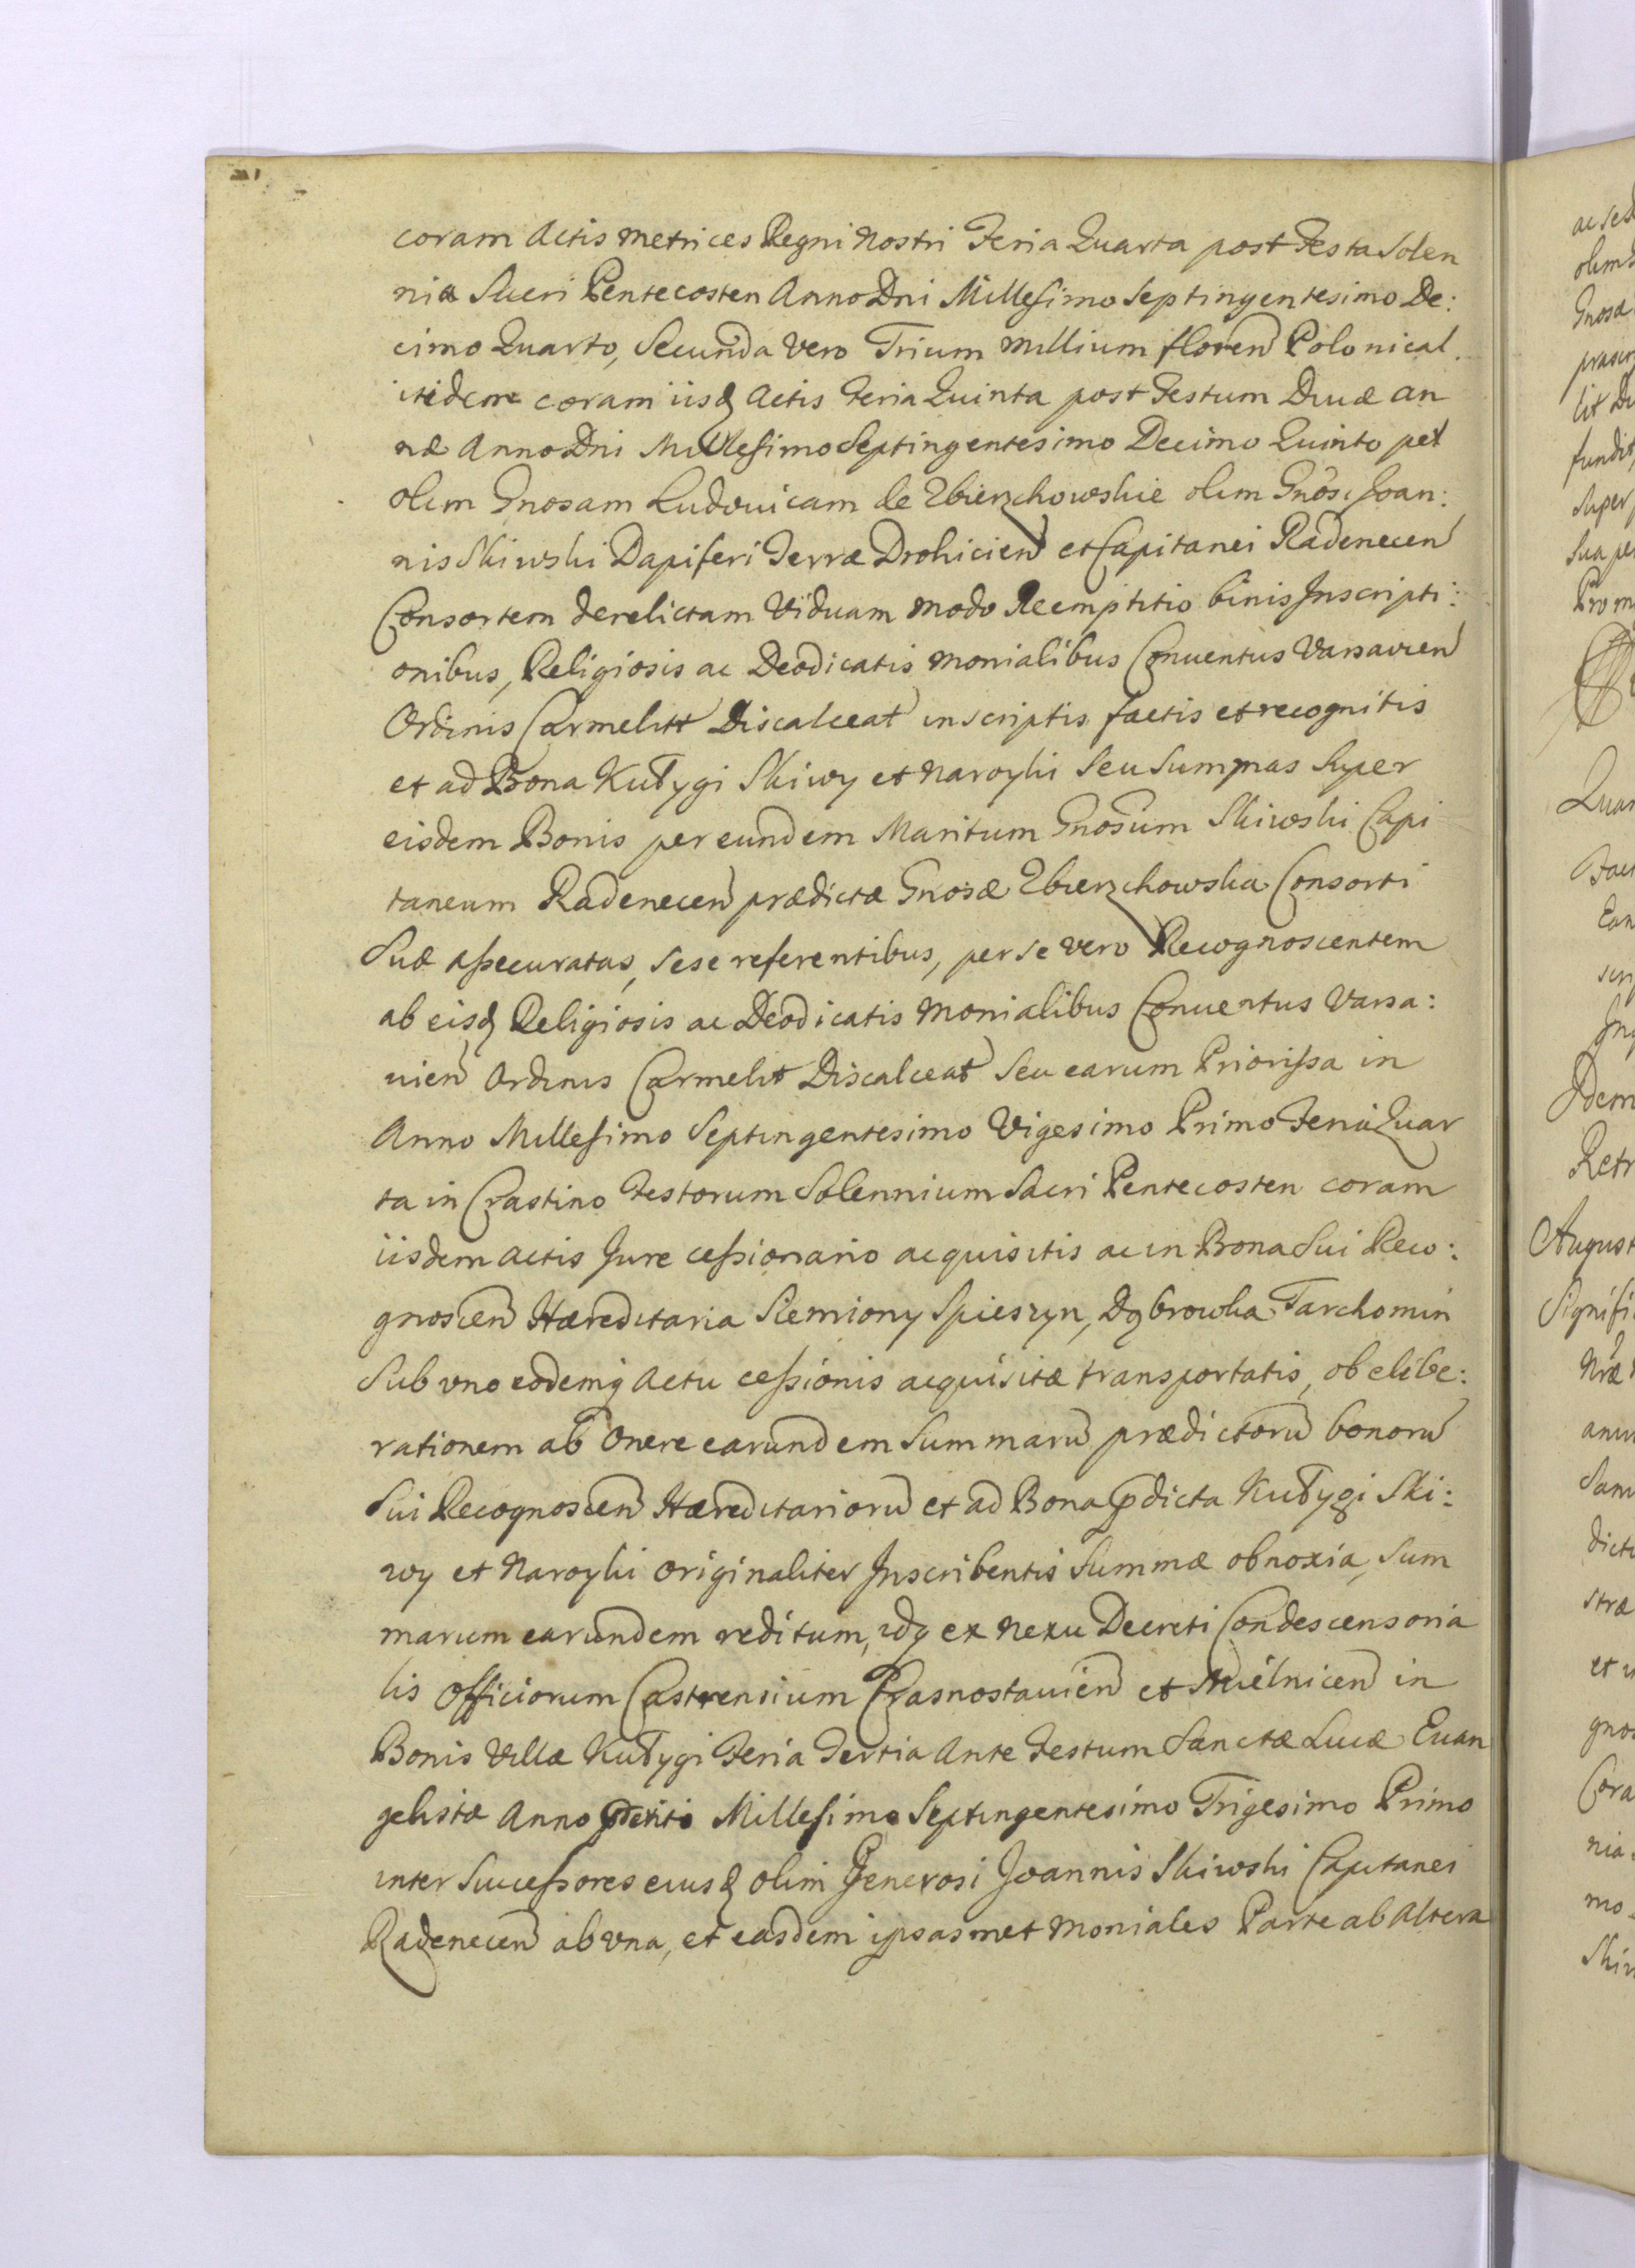 coram Actis Metrices Regni Nostri Feria Quarta post Festa Solen
nia Sacri Pentecosten Anno Dni Millesimo Septingentesimo De:
cimo Quarto, Secunda vero Trium Millium floren Polonical.
itidem coram iisq Actis Feria Quinta post Festum Divæ An
næ Anno Dni Millesimo Septingentesimo Decimo Quinto per
olim Gnosam Ludovicam de Zbierzchowskie olim Gnosi Joan:
nis Skiwski Dapiferi Terræ Drohicien et Capitanei Radenecen
Consortem derelictam Viduam modo Reemptitio binis Inscripti:
onibus, Religiosis ac Deodicatis Monialibus Conventus Varsavien
Ordinis Carmelitt Discalceat inscriptis factis et recognitis
et ad Bona Kułygi Skiwy et Naroyki Seu Summas Super
eisdem Bonis per eundem Maritum Gnosum Skiwski Capi
taneum Radenecen prædictæ Gnosæ Zbierzchowska Consorti
Suæ assecuratas, sese referentibus, per se vero Recognoscentem
ab eisq Religiosis ac Deodicatis Monialibus Conventus Varsa:
uien Ordinis Carmelit Discalceat Seu earum Priorissa in
Anno Millesimo Septingentesimo Vigesimo Primo Feria Quar
ta in Crastino Festorum Solennium Sacri Pentecosten coram
iisdem actis Jure cessionario acquisitis ac in Bona Sui Reco:
gnoscen Hæreditaria Siemiony Spieszyn, Dąbrowka Tarchomin
Sub vno eodemq Actu cessionis acquisitæ transportatis, ob elibe:
rationem ab Onere earundem Summaru prædictoru bonoru
Sui Recognoscen Hæreditarioru et ad Bona pdicta Kułygi Ski:
wy et Naroyki originaliter Inscribentis Summæ obnoxia, Sum
marum earundem reditum, idq ex nexu Decreti Condescensoria
lis Officiorum Castrensium Crasnostauien et Mielnicen in
Bonis Villæ Kułygi Feria Tertia Ante Festum Sanctæ Lucæ Euan
gelistæ Anno Millesimo Septingentesimo Trigesimo Primo
inter Successores eiusq olim Generosi Joannis Skiwski Capitanei
Radenecen ab vna, et easdem ipsasmet Moniales Parte ab Altera